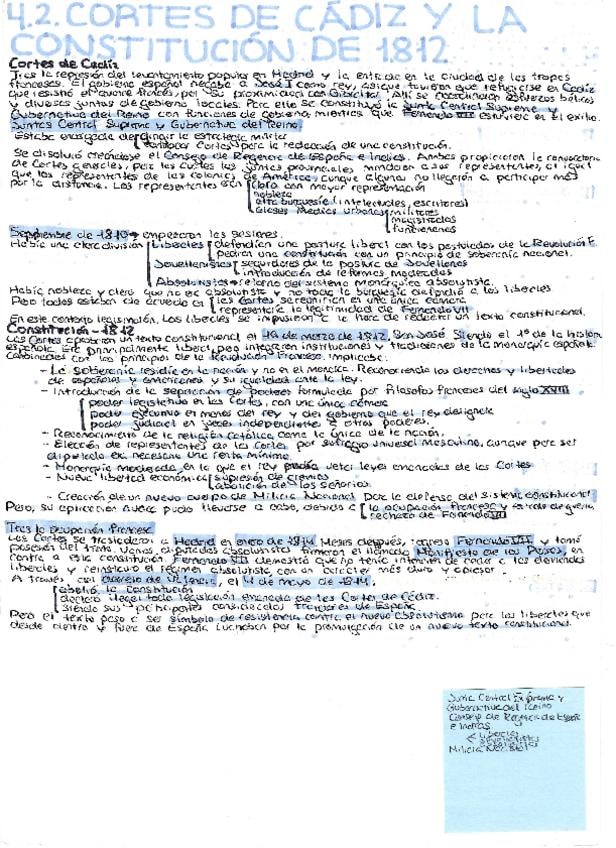 4.2. CORTES DE CÁDIZ Y LA
CONSTITUCIÓN DE 1812
Cortes de Cádiz
Tras la represión del levantamiento popular en Madrid y la entrada en la ciudad de las tropas
francesas. El gobierno español negaba a José I como rey, asique tuvieron que refugiarse en Cádiz
que resistió el avance francés, por su proximidad con Gibraltar. Allí se coordinaron esfuerzos bélicos
y diversas juntas de gobierno locales. Para ello se constituyó la Junta Central Suprema y
Gubernativa del Reino con funciones de gobierno, mientras que Fernando VII estuviera en el exilio.
Juntas Central Suprema y Gubernativa del Reino.
Estaba encargada de dirigir la estrategia militar
convocar Cortes para la redacción de una constitución.
Se disolvió creándose el Consejo de Regencia de España e Indias. Ambas propiciaron la convocatoria
de Cortes generales, para las cuales las juntas provinciales mandaron a sus representantes, al igual
que los representantes de las colonias de América, aunque algunos no llegaron a participar
por la distancia. Los representantes eran clero con mayor representación
nobleza
alta burguesía (intelectuales, escritores)
Clases Medias urbanas militares
magistrados
funcionarios
Septiembre de 1810 → empezaron las sesiones.
Había una clara división Liberales defendían una postura liberal con los postulados de la Revolución F.
pedían una constitución con un principio de soberanía nacional.
Jovellanistas seguidores de la postura de Jovellanos
introducción de reformas moderadas
Absolutistas → retorno del sistema monárquico absolutista.
Había nobleza y clero que no era absolutista y no toda la burguesía defendió a los liberales
Pero todos estaban de acuerdo en las Cortes se reunirían en una única cámara
representaría la legitimidad de Fernando VII
En este contexto legislación. Los liberales se impusieron a la hora de redactar un texto constitucional.
Constitución - 1812
Las Cortes aprobaron un texto constitucional el 19 de marzo de 1812, San José siendo el 1º de la historia
española. Era principalmente liberal, pero integraron instituciones y tradiciones de la monarquía española.
Combinadas con los principios de la Revolución Francesa. Implicaba:
- La soberanía residía en la nación y no en el monarca. Reconociendo los derechos y libertades
de españoles y americanos y su igualdad ante la ley.
- Introducción de la separación de poderes formulada por filósofos franceses del siglo XVIII
poder legislativo en las Cortes, con una única cámara
poder ejecutivo en manos del rey y del gobierno que el rey designara
poder judicial en jueces independientes a otros poderes.
- Reconocimiento de la religión católica como la única de la nación.
- Elección de representantes de las Cortes por sufragio universal masculino, aunque para ser
diputado era necesario una renta mínima.
- Monarquía moderada, en la que el rey podía vetar leyes emanadas de las Cortes
- Nueva libertad económica supresión de gremios
abolición de los señoríos
- Creación de un nuevo cuerpo de Milicia Nacional para la defensa del sistema constitucional
Pero, su aplicación nunca pudo llevarse a cabo, debido a la ocupación francesa y estado de guerra,
rechazo de Fernando VII
Tras la ocupación francesa
Las Cortes se trasladaron a Madrid en enero de 1814. Meses después, regresó Fernando VII y tomó
posesión del trono. Varios diputados absolutistas firmaron el llamado Manifiesto de los Persas, en
contra a esta constitución. Fernando VII demostró que no tenía intención de ceder a las demandas
liberales y reinstauró el régimen absolutista, con un carácter más duro y opresor.
A través con decreto de Valencia, el 4 de mayo de 1814,
abolió la constitución
declaró ilegal toda legislación emanada de las Cortes de Cádiz.
siendo sus participantes considerados traidores de España.
Pero el texto pasó a ser símbolo de resistencia contra el nuevo absolutismo para los liberales que
desde dentro y fuera de España luchaban por la promulgación de un nuevo texto constitucional.
Junta Central Suprema y
Gubernativa del Reino
Consejo de Regencia de España
e Indias
liberales
jovellanistas
absolutistas
Milicia Nacional